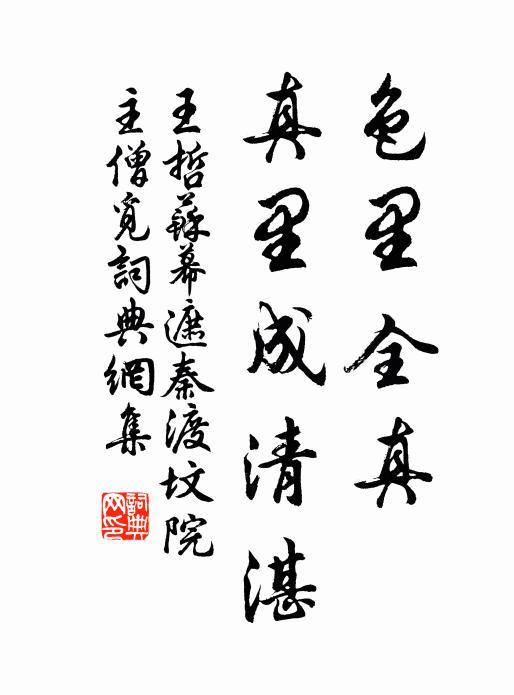 色里全真
真里成清湛
王哲蘇幕遮秦渡坟院
主僧覓詞典網集
詞典網印